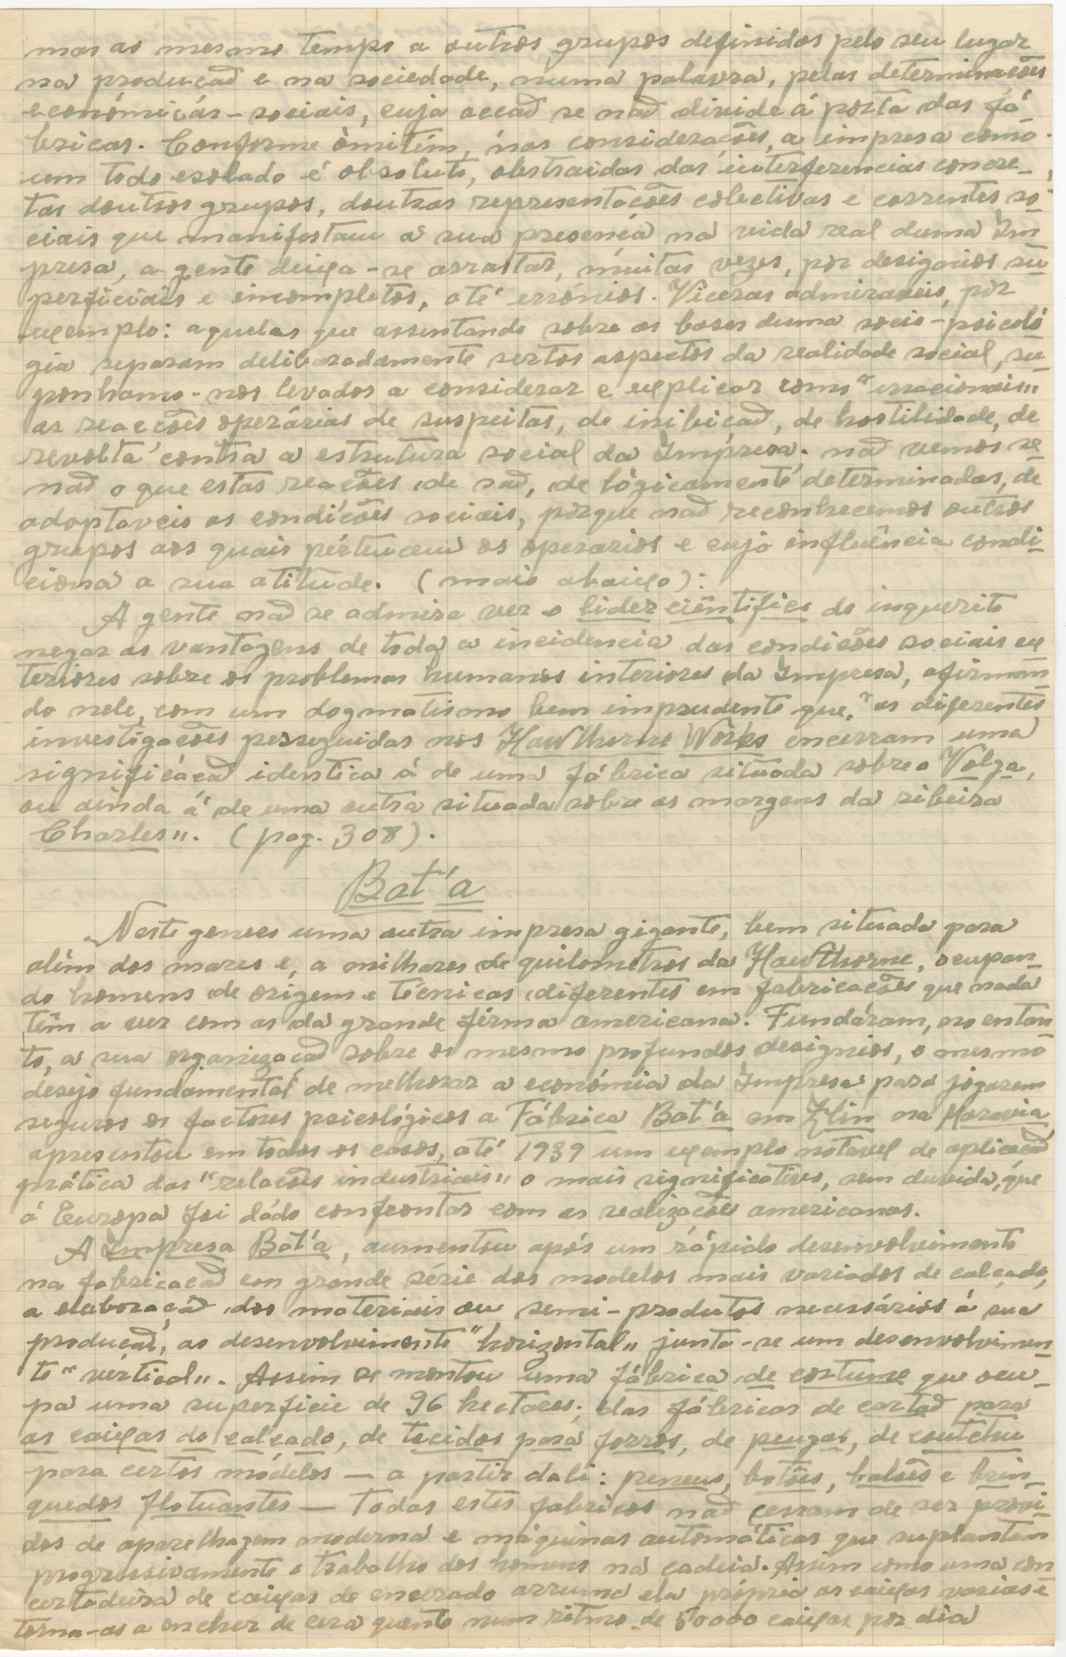 mas ao mesmo tempo a outros grupos definidos pelo seu lugar
na produçaõ e na sociedade, numa palavra, pelas determinações
económicas-sociais, cuja acçaõ se naõ divide á porta das fá
bricas. Conforme òmitím, nas considerações, a impresa como
um todo esolado é obsoluto, abstraidas das interferencias concre-
tas doutros grupos, doutras representações colectivas e correntes so
ciais que manifestam a sua presença na vida real duma Im
presa, a gente deiça-se arrastar, muitas vezes, por designios su
perficiais e imcompletos, até errónios. Viceras admiraveis, por
exemplo: aquelas que assentando sobre as bases duma socio-psicoló
gia separam deliboradamente sertos aspectos da realidade social, su
ponhamo-nos levados a considerar e explicar como "irracionais"
as reacções operárias de suspeitas, de inibiçaõ, de hostilidade, de
revolta contra a estrutura social da Impresa. naõ vemos se
naõ o que estas reações de saõ, de lógicamente determinadas, de
adoptaveis as condições sociais, porque naõ reconhecemos outros
grupos aos quais pertencem os operarios e cuja influência condi-
ciona a sua atitude. (mais abaiço):
A gente naõ se admira ver o lider ciêntifico do inquerito
negar as vantagens de toda a incidencia das condições sociais ex
teriores sobre os problemas humanos interiores da Impresa, afirman-
do nele, com um dogmatismo bem imprudente que, "as diferentes
investigações perseguidas nos Hawthorne Works encerram uma
significáçaõ identica á de uma fábrica situada sobre o Volga,
ou ainda á de uma outra situada sobre as margens da ribeira
Charles". (pag. 308).
Bat'a
Neste genero uma outra impresa gigante, bem situada para
além dos mares e, a milhares de quilometros da Hawthorne, ocupan-
do homens de origem e técnicas diferentes em fabricações que nada
têm a ver com as da grande firma americana. Fundáram, no entan
to, a sua organizaçaõ sobre os mesmo profundos designios, o mesmo
desejo fundamental de melhorar a económia da Impresa para jogarem
seguros os factores psicológicos a Fábrica Bat'a em Zlin na Moravia
apresentou em todos os casos, até 1939 um exemplo notavel de aplicaçaõ
prática das "relações industriais" o mais significativo, sem duvida, que
á Europa foi dádo confrontar com as realizações americanas.
A Impresa Bat'a, aumentou após um rápido desenvolvimento
na fabricaçaõ em grande série dos modelos mais variados de calçado,
a elaboraçaõ dos materiais ou semi-produtos necessários á sua
produçaõ, ao desenvolvimento "horizontal" junta-se um desenvolvimen-
to "vértical". Assim se montou uma fábrica de costume que ocu-
pa uma superficie de 96 hectares; das fábricas de cartaõ para
as caiças do calçado, de tecidos para forros, de peugas, de coutchu
para certos módelos — a partir dali: peneus, botões, balões e brin-
quedos flutuantes — Todas estes fabricas naõ cessam de ser provi-
dos de aparelhagem moderna e máquinas automáticas que suplantam
progressivamente o trabalho dos homens na cadeia. Assim como uma con
certadeira de caiças de encerado arruma ela própria as caiças vasias e
torna-as a encher de cera quente num ritmo de 50000 caiças por dia